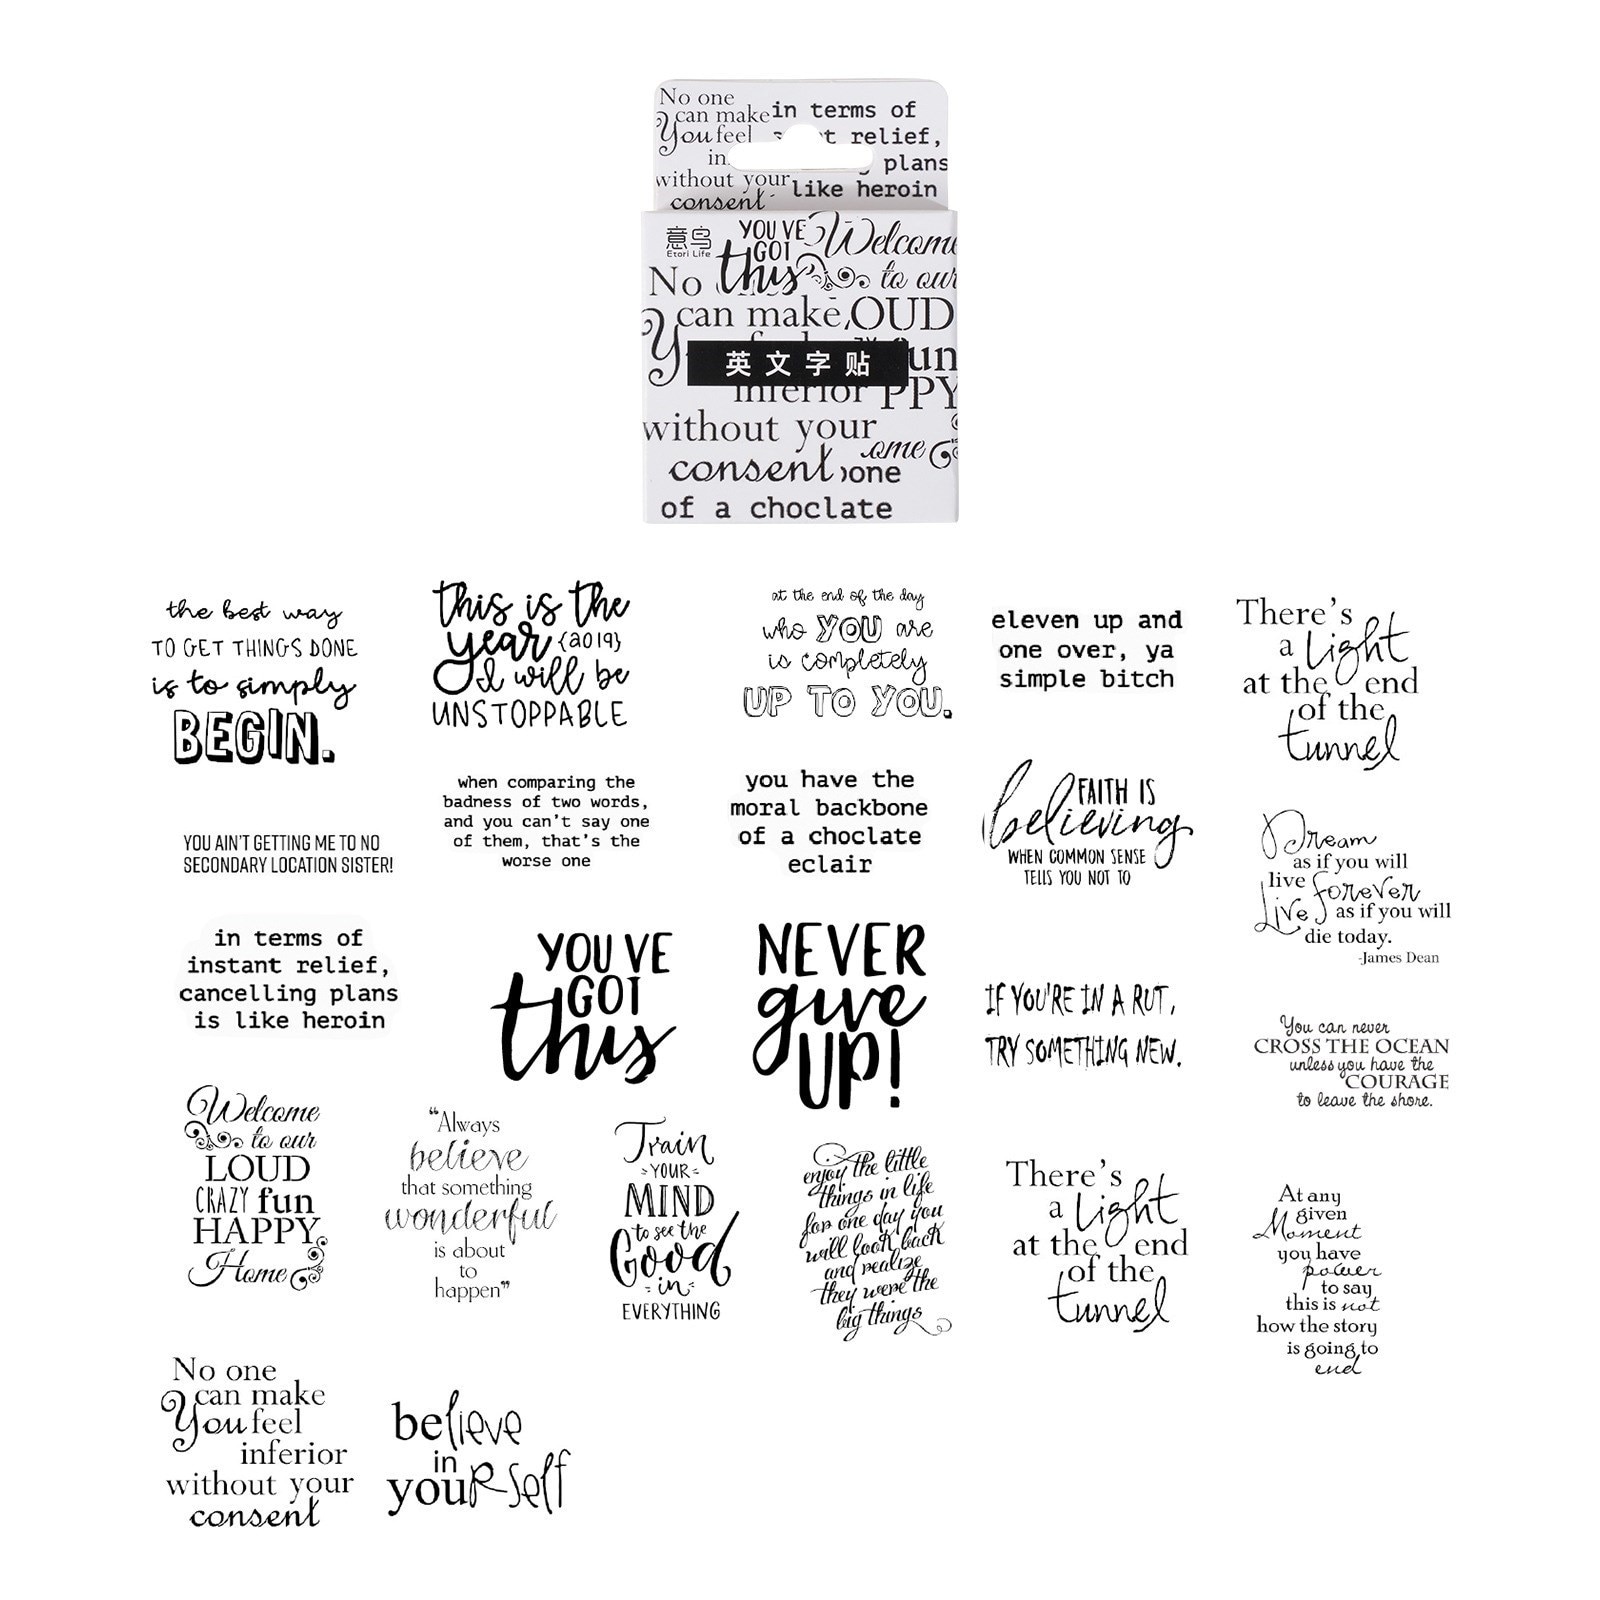 No one
can make
You feel
in
without your
consent
in terms of
relief,
plans
like heroin
意鸟
Etori Life
YOU'VE
GOT
this
Welcome
to our
No
can make
OUD
英文字贴
fun
inferior
PPY
without your
ome
consent
one
of a choclate
the best way
TO GET THINGS DONE
is to simply
BEGIN.
this is the
year {2019}
I will be
UNSTOPPABLE
at the end of the day
who YOU are
is completely
UP TO YOU.
eleven up and
one over, ya
simple bitch
There's
a Light
at the end
of the
tunnel
YOU AIN'T GETTING ME TO NO
SECONDARY LOCATION SISTER!
when comparing the
badness of two words,
and you can't say one
of them, that's the
worse one
you have the
moral backbone
of a choclate
eclair
FAITH IS
believing
WHEN COMMON SENSE
TELLS YOU NOT TO
Dream
as if you will
live forever
Live as if you will
die today.
-James Dean
in terms of
instant relief,
cancelling plans
is like heroin
YOU'VE
GOT
this
NEVER
give
UP!
IF YOU'RE IN A RUT,
TRY SOMETHING NEW.
You can never
CROSS THE OCEAN
unless you have the
COURAGE
to leave the shore.
Welcome
to our
LOUD
CRAZY fun
HAPPY
Home
“Always
believe
that something
wonderful
is about
to
happen”
Train
YOUR
MIND
to see the
Good
in
EVERYTHING
enjoy the little
things in life
for one day you
will look back
and realize
they were the
big things
There's
a Light
at the end
of the
tunnel
At any
given
Moment
you have
power
to say
this is not
how the story
is going to
end
No one
can make
You feel
inferior
without your
consent
believe
in
yourself